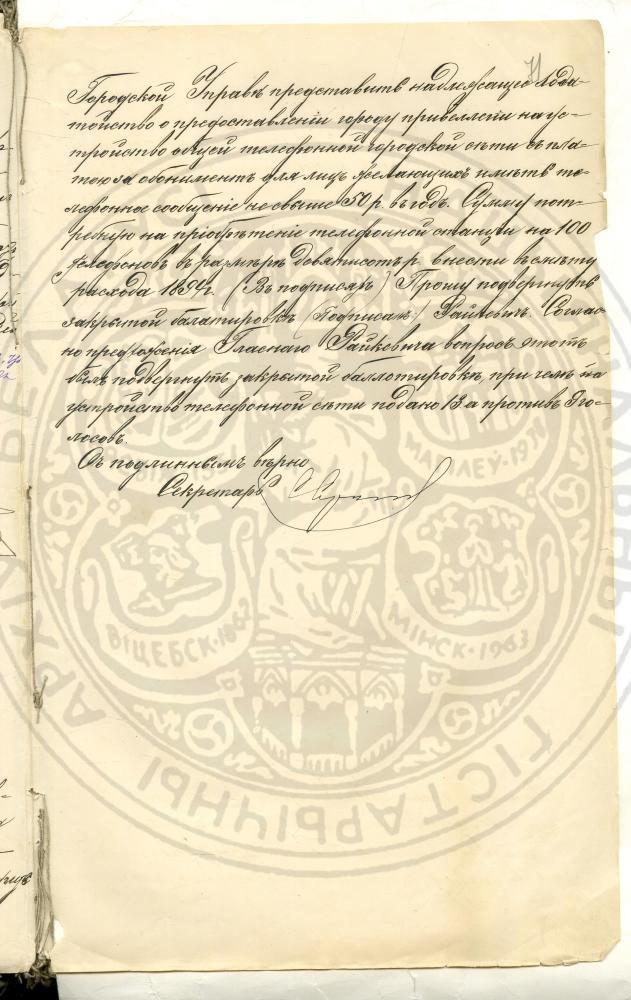 71
Городской Управѣ представить надлежащее хода-
тайство о предоставленіи городу привеллегіи на ус-
тройство общей телефонной городской сѣти съ пла-
тою за абониментъ для лицъ желающихъ имѣть те-
лефонное сообщеніе не свыше 50 р. въ годъ. Сумму пот-
ребную на пріобрѣтеніе телефонной станціи на 100
телефоновъ въ размѣрѣ девятисотъ р. внести въ смѣту
расхода 1894 г. (Въ подписяхъ) Прошу подвергнуть
закрытой балатировкѣ (Подписалъ:) Райкевичъ. Соглас-
но предложенія Гласнаго Райкевича вопросъ этотъ
былъ подвергнутъ закрытой баллотировкѣ, при чемъ за
устройство телефонной сѣти подано 13 а противъ 9 го-
лосовъ.
Съ подлиннымъ вѣрно
Секретарь
МАГІЛЕЎ·19
ВІЦЕБСК·1862
МІНСК·1963
ГІСТАРЫЧНЫ